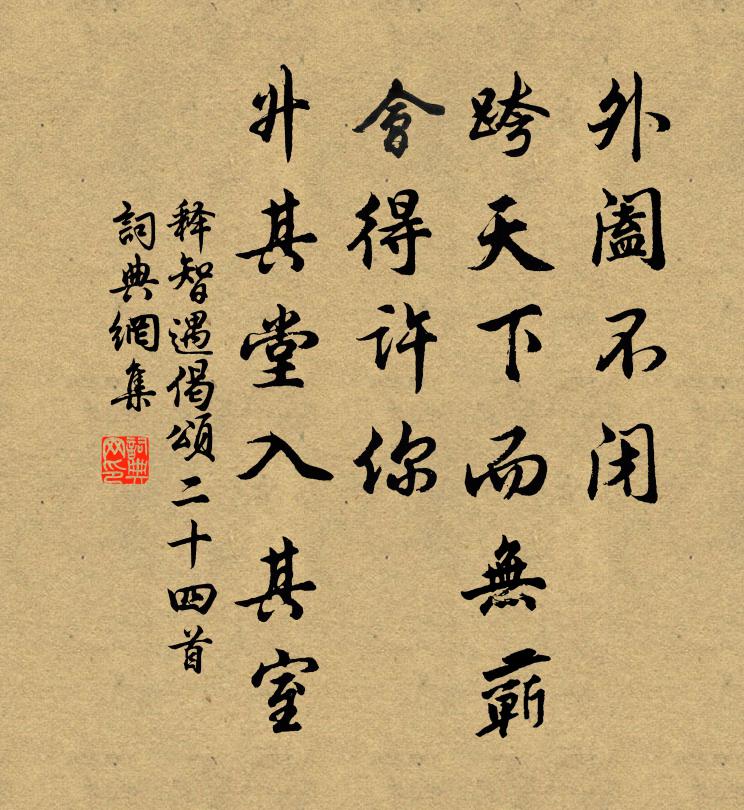 外阖不闭
跨天下而無蘄
會得許你
升其堂入其室
释智遇偈頌二十四首
詞典網集
詞典网印